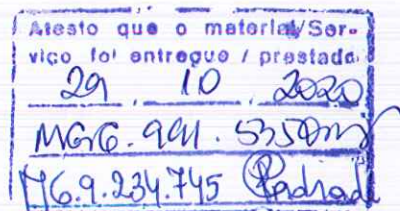 Atesto que o material/Ser-
viço foi entregue / prestado
29 10 2020
MG6.991.535
M6.9.234.745